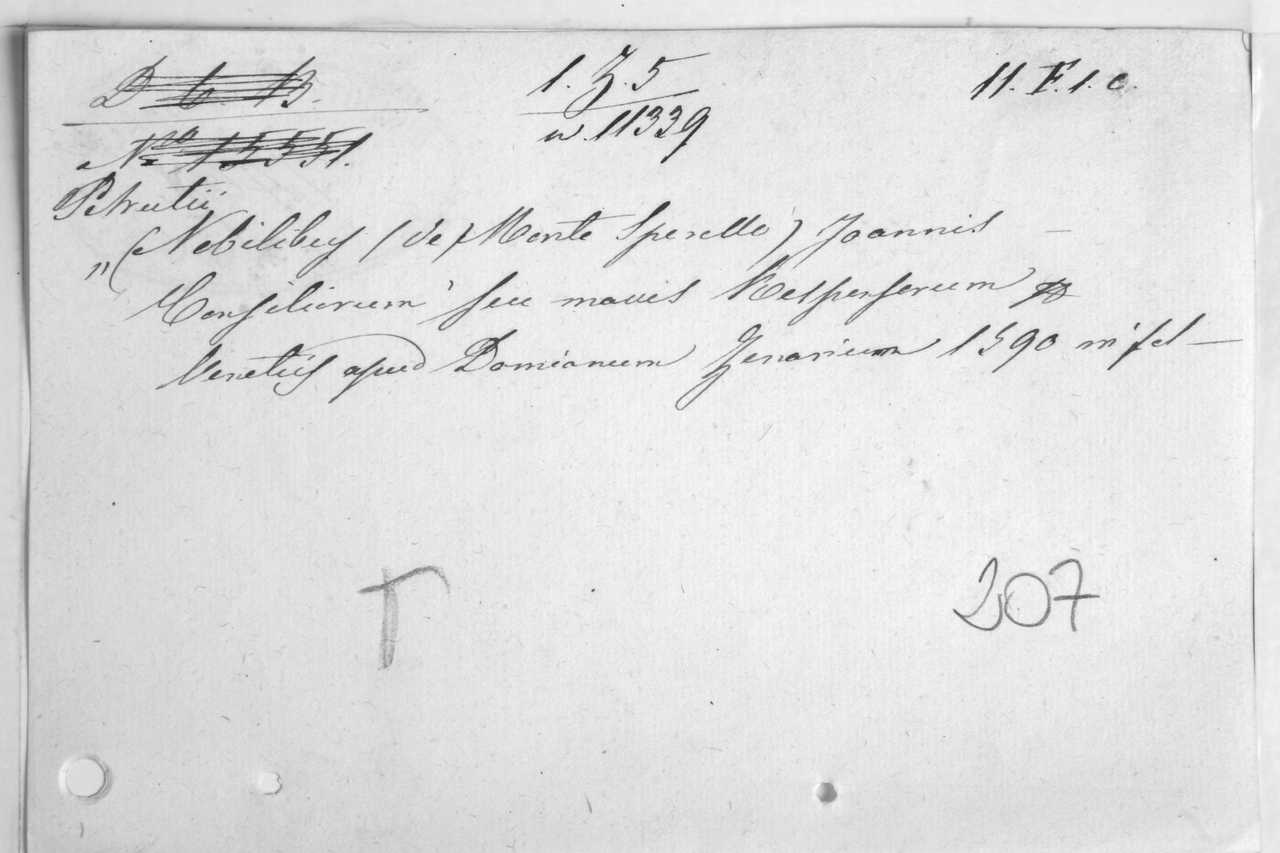 D 6 B. 1. Z. 5 11. F. 1. c.
No 15551. n. 11339
Petrutii
„ (Nobilibus (de) Monte Sperello) Joannis —
Consiliorum seu mauis Responsorum
Venetiis apud Damianum Zenarium 1590 in fol —
T 207